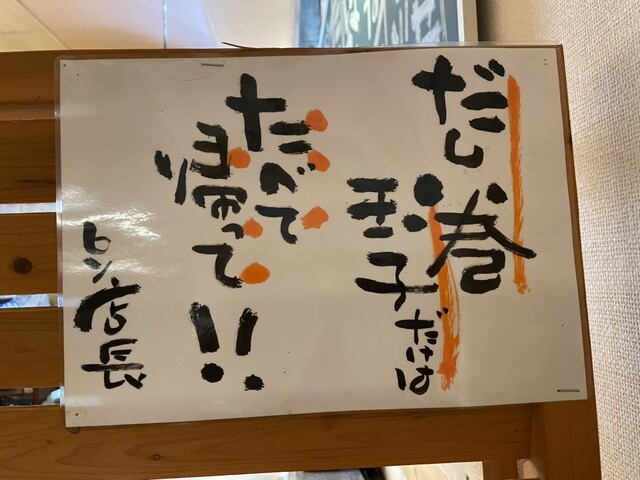 だし巻
玉子だけは
たべて
帰って!!
ヒソ店長